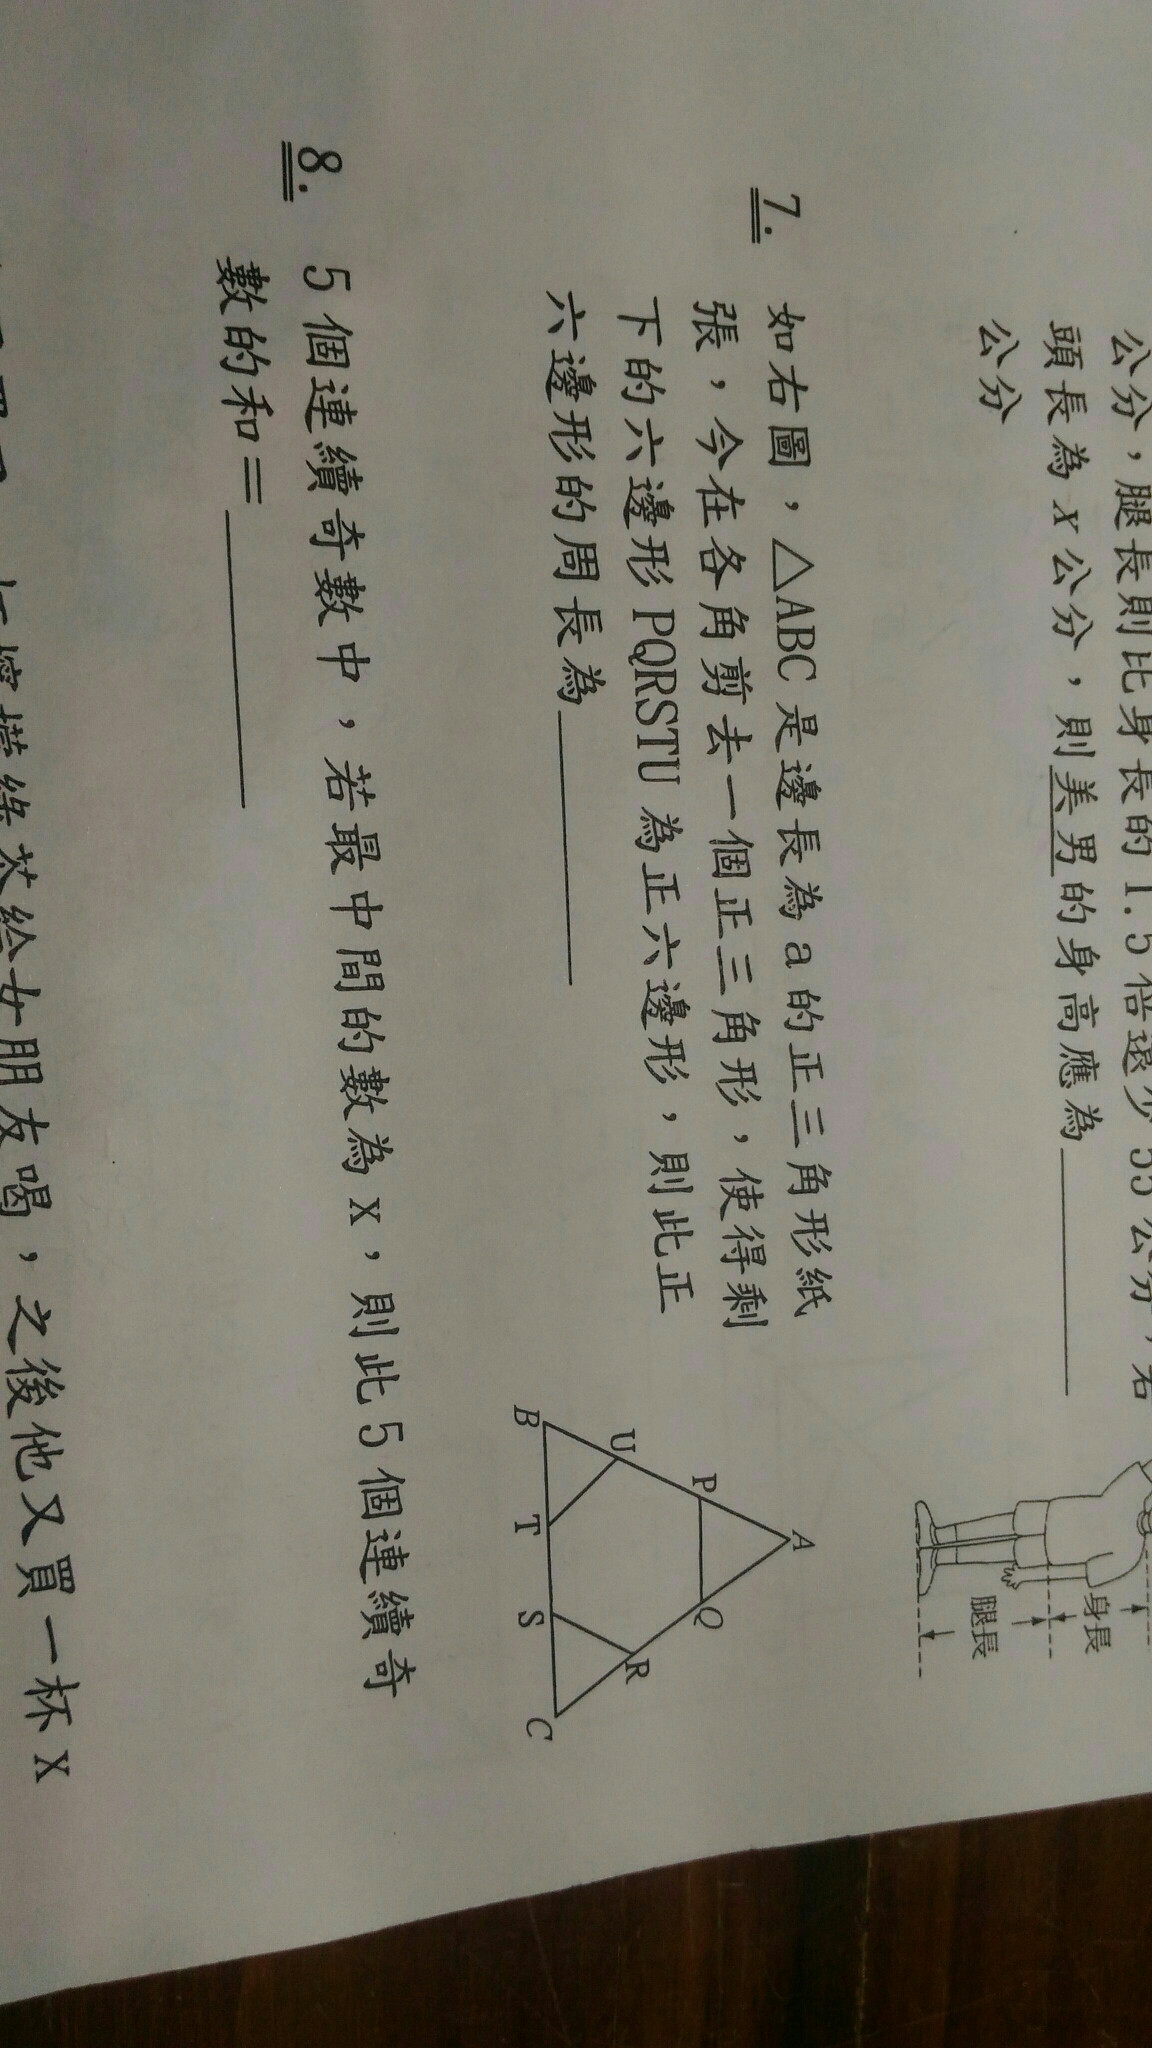 公分，腿長則比身長的1.5倍還少55公分，若
頭長為x公分，則美男的身高應為
公分
身長
腿長
7. 如右圖，△ABC是邊長為a的正三角形紙
張，今在各角剪去一個正三角形，使得剩
下的六邊形PQRSTU為正六邊形，則此正
六邊形的周長為
A
P Q
U R
B T S C
8. 5個連續奇數中，若最中間的數為x，則此5個連續奇
數的和＝
綠茶給女朋友喝，之後他又買一杯x